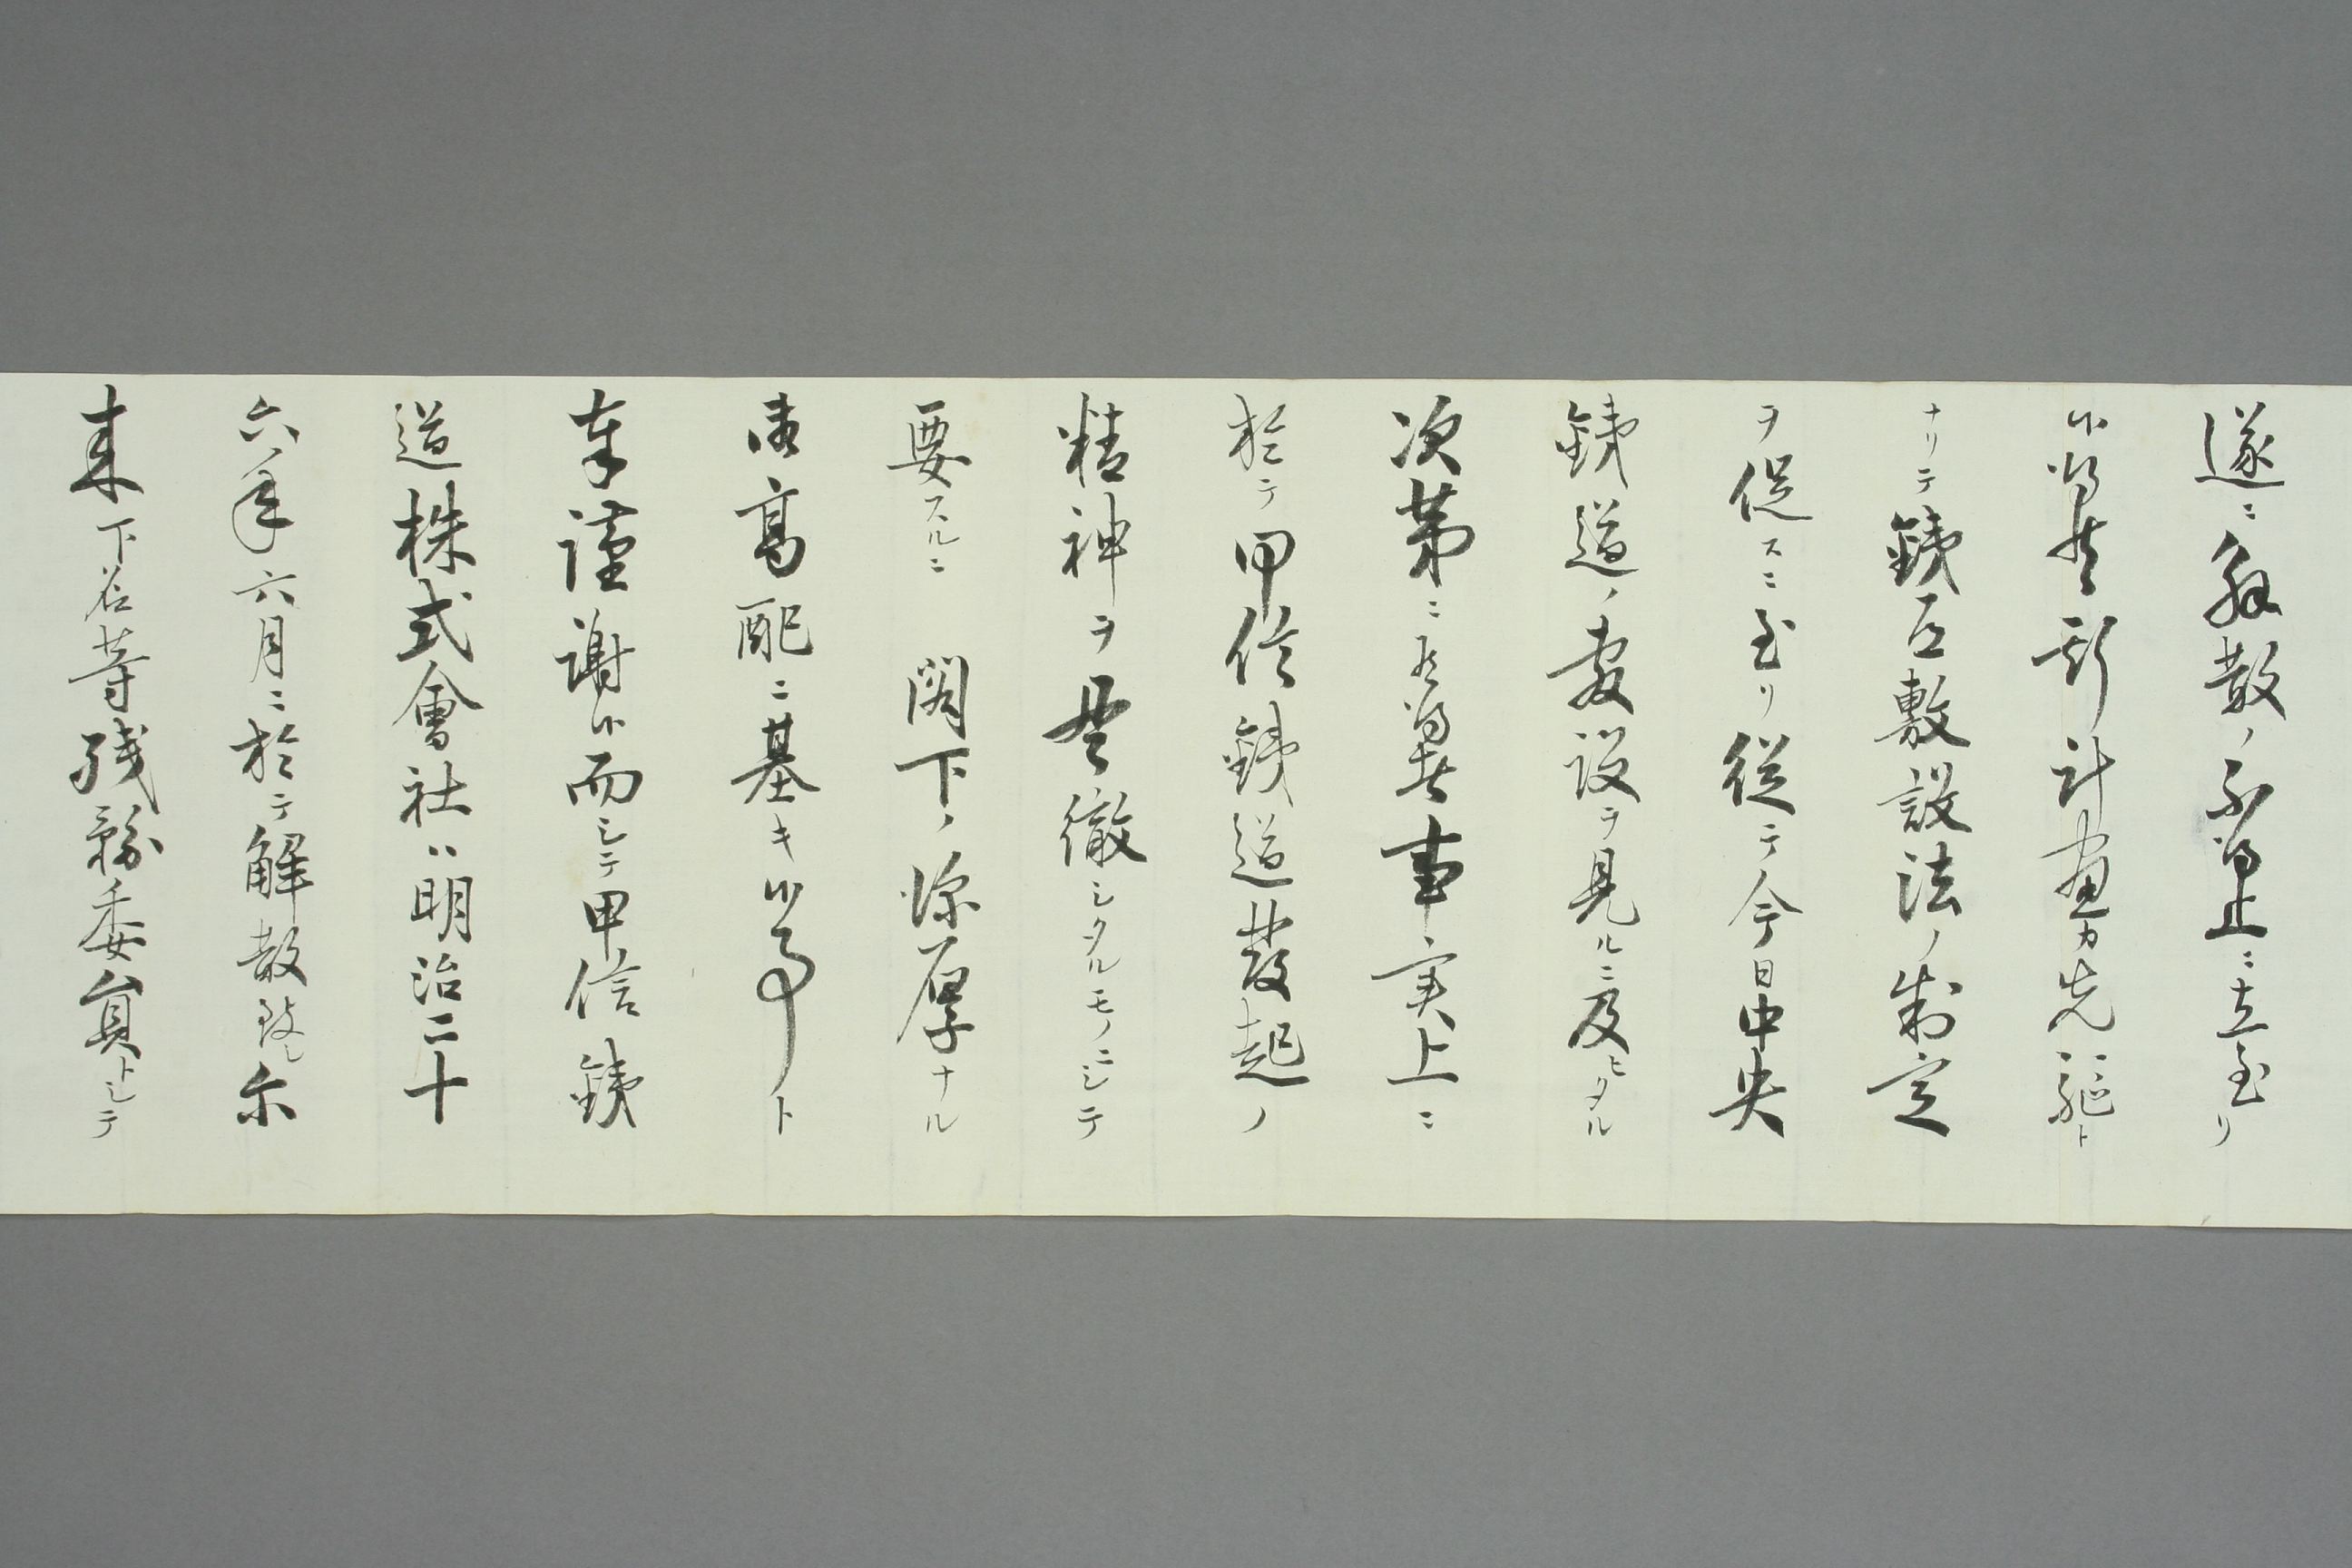 遂ニ解散ノ不得止ニ立至リ
候得共新計画カ先駆ト
ナリテ鉄道敷設法ノ制定
ヲ促スニ至リ従テ今日中央
鉄道ノ敷設ヲ見ルニ及ヒタル
次第ニ候得共事実上ニ
於テ甲信鉄道発起ノ
精神ヲ貫徹シタルモノニシテ
要スルニ 閣下ノ深厚ナル
御高配ニ基キ候事ト
奉謹謝候而シテ甲信鉄
道株式會社ハ明治二十
六年六月ニ於テ解散致シ尓
来下名等残務委員トシテ